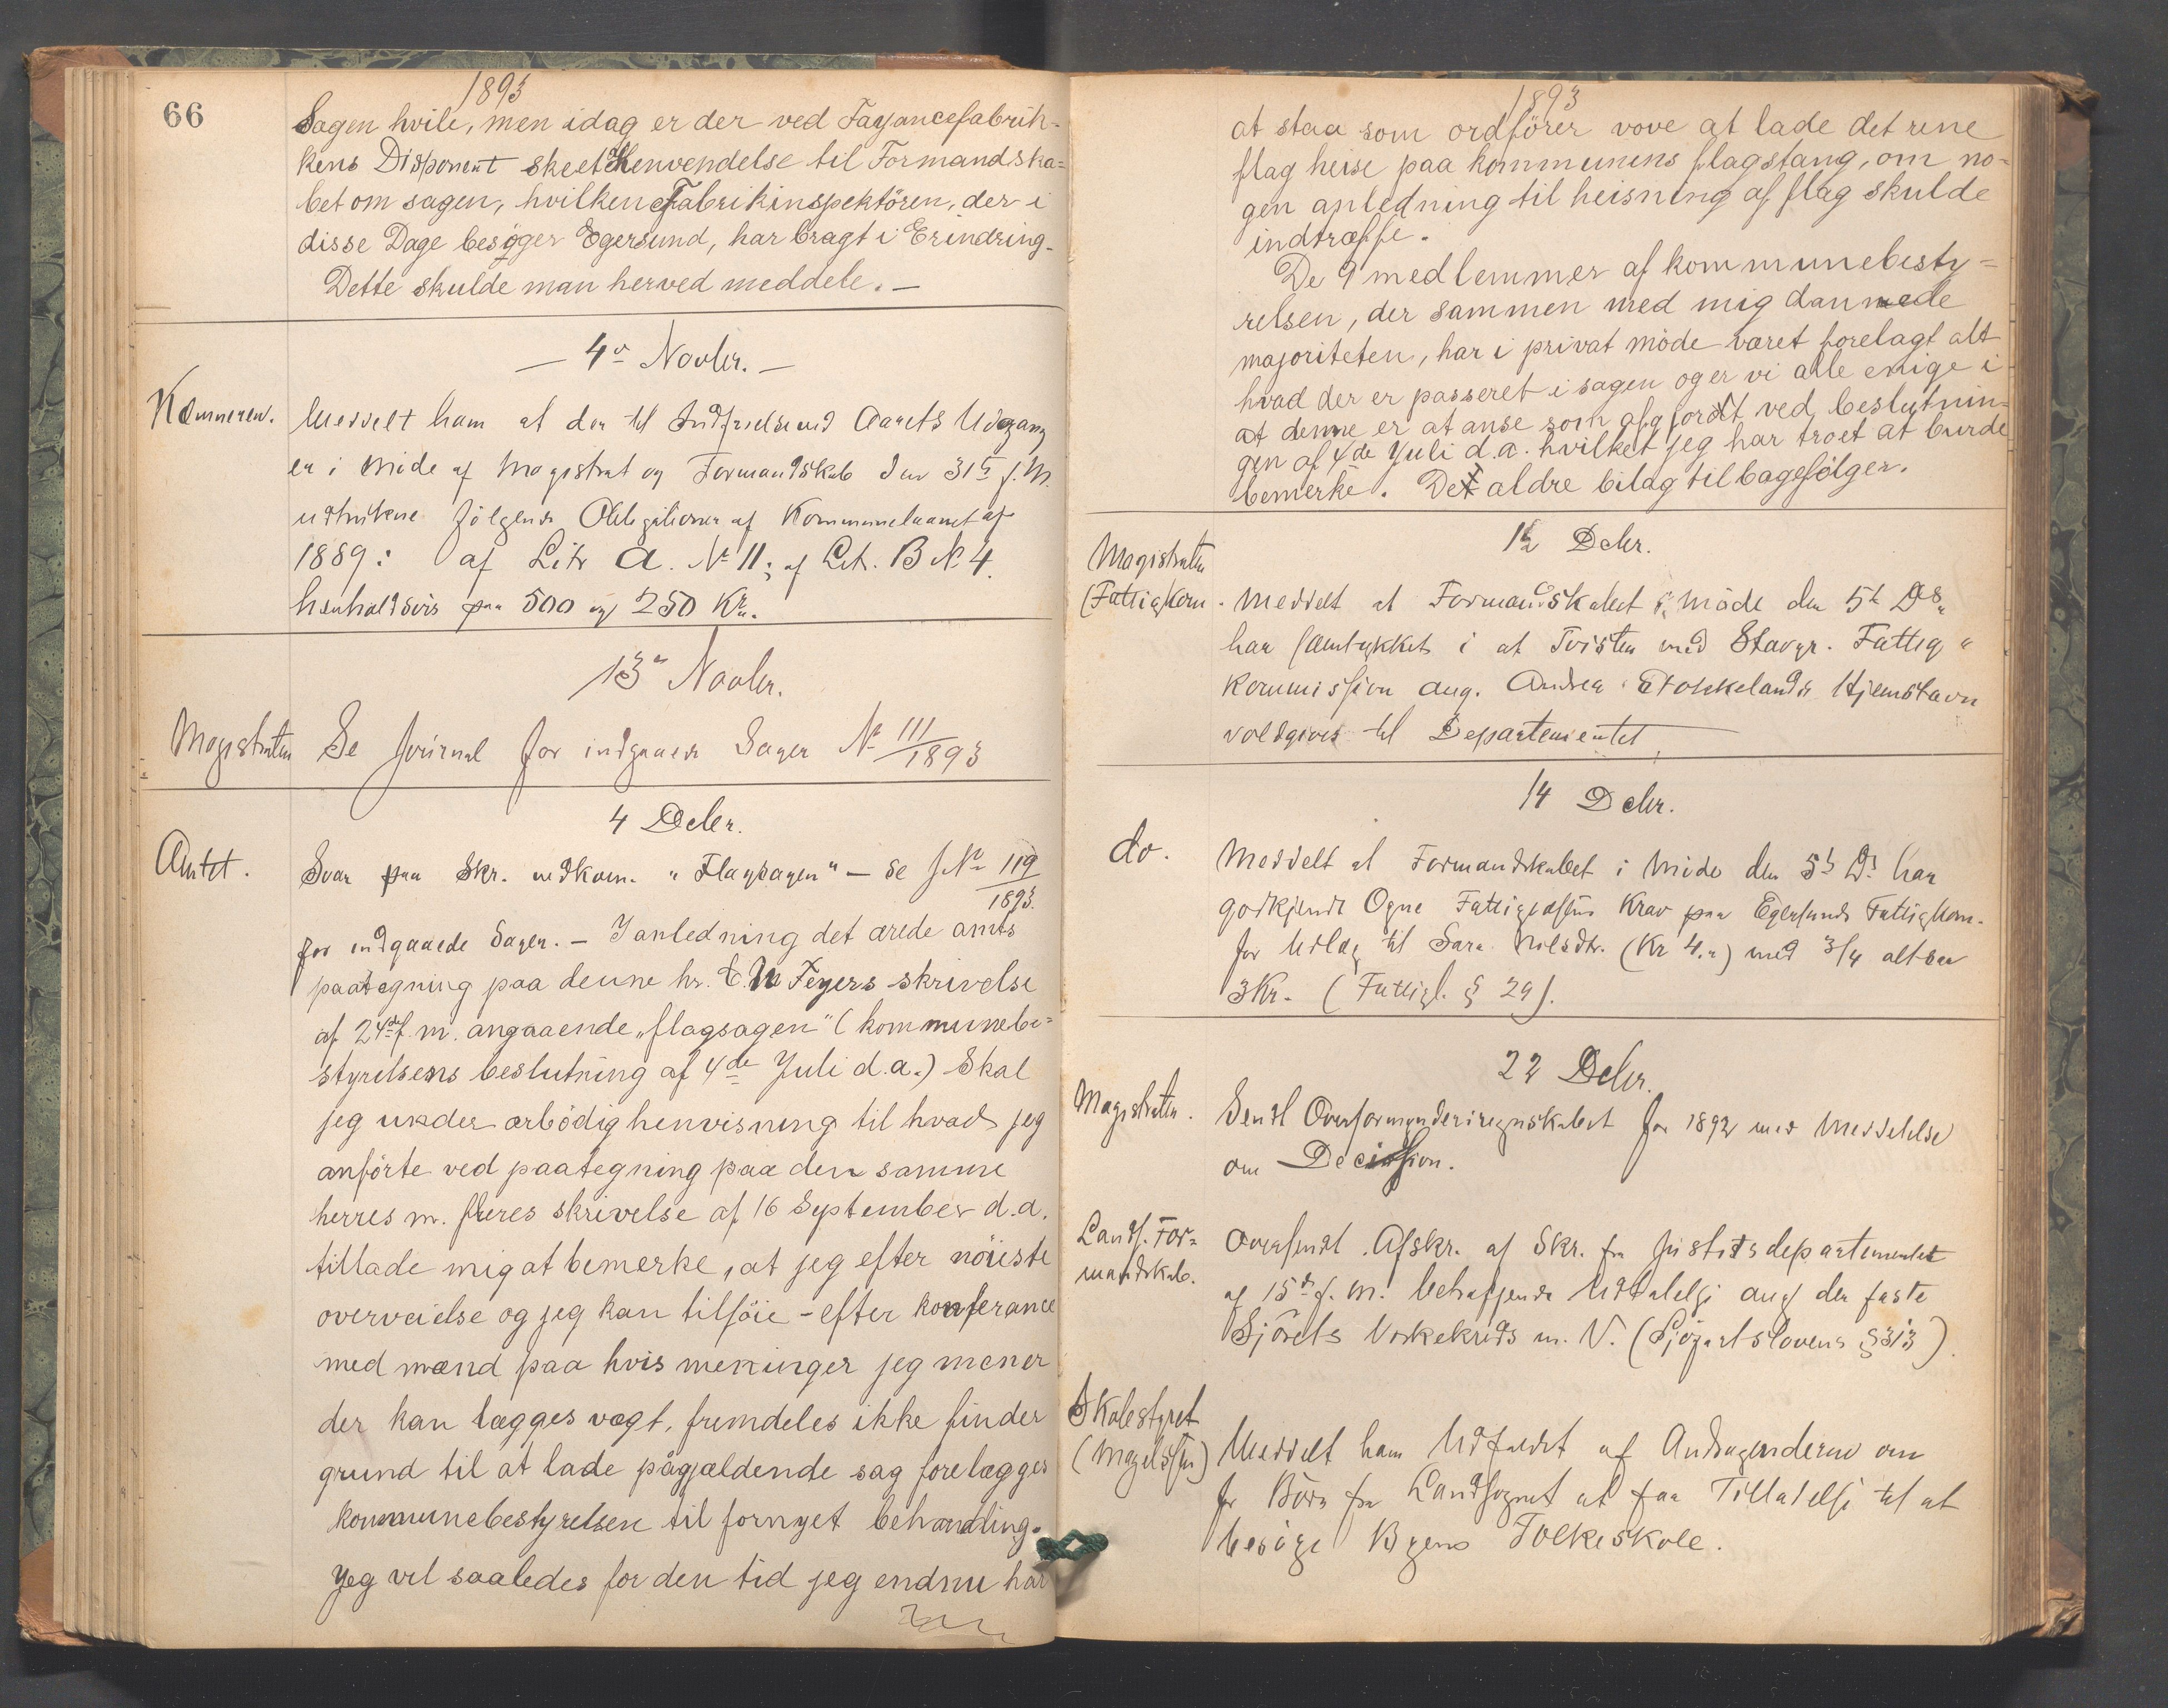 66
1893
Sagen hvile, men idag er der ved Fayancefabrik-
kens Disponent skeet Henvendelse til Formandska=
bet om sagen, hvilken Fabrikinspektören, der i
disse Dage besøger Egersund, har bragt i Erindring-
Dette skulde man herved meddele. —
— 4de Novbr. —
Kæmneren.
Meddelt ham at der til Indfrielse ved Aarets Udgang
er i Möde af Magistrat og Formandskab den 31te f. M.
udtrukne følgende Obligationer af Kommunelaanet af
1889: af Litr A. No 11; af Lit. B No 4.
henholdsvis paa 500 og 250 Kr.
13de Novbr.
Magistraten
Se Journal for indgaaede Sager No 111/1893
4 Decbr.
Amtet.
Svar paa Skr. vedkom. "Flagsagen" — Se J No 119/1893.
for indgaaede Sager. — I anledning det ærede amts
paategning paa denne hr. C. M Feyers skrivelse
af 24de f. m. angaaende „flagsagen" (kommunebe=
styrelsens beslutning af 4de Juli d.a.) Skal
jeg under ærbödig henvisning til hvad jeg
anförte ved paategning paa den samme
herres m. fleres skrivelse af 16 September d.a.
tillade mig at bemerke, at jeg efter nöieste
overveielse og jeg kan tilföie - efter konferance
med mænd paa hvis meninger jeg mener
der kan lægges vægt, fremdeles ikke finder
grund til at lade pågjældende sag forelægges
kommunebestyrelsen til fornyet behandling.
Jeg vil saaledes for den tid jeg endnu har
1893
at staa som ordförer vove at lade det rene
flag heise paa kommunens flagstang, om no-
gen anledning til heisning af flag skulde
indtræffe.
De 9 medlemmer af kommunebesty=
relsen, der sammen med mig dannede
majoriteten, har i privat möde været forelagt alt
hvad der er passeret i sagen og er vi alle enige i
at denne er at anse som afgjordt ved beslutnin=
gen af 4de Juli d.a. hvilket jeg har troet at burde
bemerke. Det ældre bilag tilbagefölger.
12 Decbr.
Magistraten
(Fattigkom.
Meddelt at Formandskabet i Möde den 5te Ds.
har samtykket i at Tvisten med Stavgr. Fattig"
kommission ang. Andrea Stokkelands Hjemstavn
voldgives til Departementet.
14 Decbr.
do.
Meddelt at Formandskabet i Möde den 5te Ds. har
godkjendt Ogne Fattigvæsens Krav paa Egersunds Fattigkom.
for Udlæg til Sara Nilsdtr. (Kr 4.") med 3/4 altsaa
3 Kr. (Fattigl. § 29).
22 Decbr.
Magistraten.
Sendt Overformynderiregnskabet for 1892 med Meddelelse
om Decission.
Lands. For=
mandskab.
Oversendt Afskr. af Skr. fra Justitsdepartementet
af 15de f. m. betræffende Udtalelse ang den faste
Sjörets Virkekreds m. V. (Sjöfartslovens § 313).
Skolestyret
Meddelt ham Udfaldet af Andragenderne om
for Börn fra Landsognet at faa Tilladelse til at
besöge Byens Folkeskole.